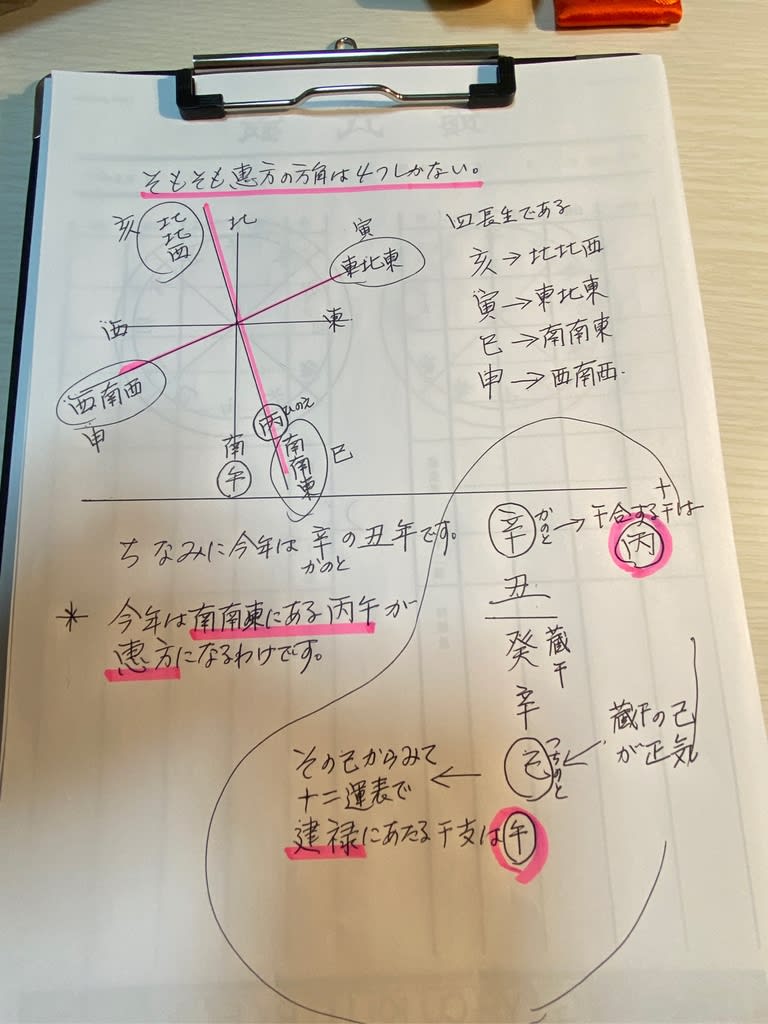 そもそも恵方の方角は4つしかない。
亥
北北西
北
寅
東北東
西
東
西南西
申
丙
ひのえ
南
午
南南東
巳
四長生である
亥→北北西
寅→東北東
巳→南南東
申→西南西.
ちなみに今年は辛の丑年です。
かのと
* 今年は南南東にある丙午が
恵方になるわけです。
辛 かのと → 干合する干は
+
丙
丑
癸 蔵干
辛
己 つちのと
←
蔵干の己
が正気
その己からみて
十二運表で
建禄にあたる干支は午